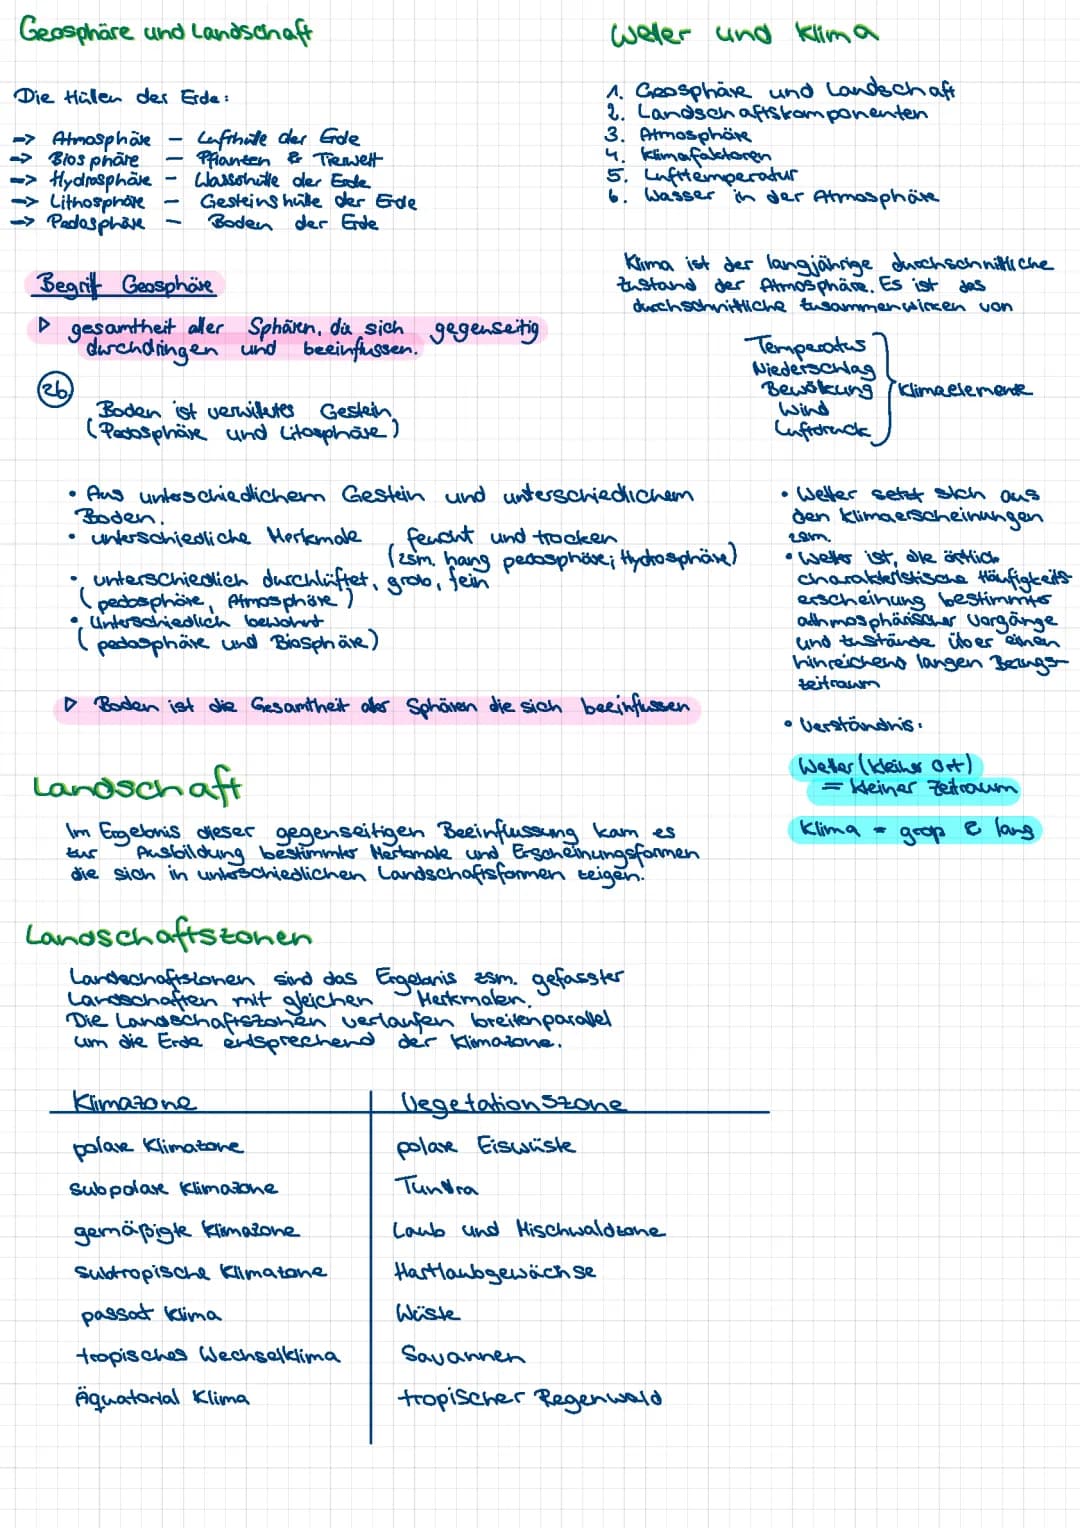 Geosphäre und Landschaft
Die Hüllen der Erde:
=> Atmosphäre – Lufthülle der Erde
=> Biosphäre – Pflanten & Tierwelt
=> Hydrosphäre – Wasserhülle der Erde
=> Lithosphäre – Gesteinshülle der Erde
=> Pedosphäre – Boden der Erde
Begriff Geosphäre
▷ gesamtheit aller Sphären, die sich gegenseitig
durchdringen und beeinflussen.
2b)
Boden ist verwittertes Gestein
(Pedosphäre und Litosphäre)
• Aus unterschiedlichem Gestein und unterschiedlichem
Boden.
• unterschiedliche Merkmale, feucht und trocken
(zsm. hang pedosphäre; Hydrosphäre)
• unterschiedlich durchlüftet, grob, fein
(pedosphäre, Atmosphäre)
• Unterschiedlich bewohnt
(pedosphäre und Biosphäre)
▷ Boden ist die Gesamtheit aller Sphären die sich beeinflussen
Landschaft
Im Ergebnis dieser gegenseitigen Beeinflussung kam es
zur Ausbildung bestimmter Merkmale und Erscheinungsformen
die sich in unterschiedlichen Landschaftsformen zeigen.
Landschaftszonen
Landschaftszonen sind das Ergebnis zsm. gefasster
Landschaften mit gleichen Merkmalen.
Die Landschaftszonen verlaufen breitenparallel
um die Erde entsprechend der Klimazone.
Klimazone | Vegetationszone
polare Klimazone | polare Eiswüste
subpolare Klimazone | Tundra
gemäßigte Klimazone | Laub und Mischwaldzone
Subtropische Klimazone | Hartlaubgewächse
passat Klima | Wüste
tropisches Wechselklima | Savannen
Äquatorial Klima | tropischer Regenwald
Wetter und Klima
1. Geosphäre und Landschaft
2. Landschaftskomponenten
3. Atmosphäre
4. Klimafaktoren
5. Lufttemperatur
6. Wasser in der Atmosphäre
Klima ist der langjährige durchschnittliche
Zustand der Atmosphäre. Es ist das
durchschnittliche Zusammenwirken von
Temperatur
Niederschlag
Bewölkung
Wind
Luftdruck
Klimaelemente
• Wetter setzt sich aus
den Klimaerscheinungen
zsm.
• Wetter ist, die örtlich
charakteristische Häufigkeits-
erscheinung bestimmter
athmosphärischer Vorgänge
und Zustände über einen
hinreichend langen Bezungs-
zeitraum
• Verständnis:
Wetter (kleiner Ort)
= kleiner Zeitraum
Klima = groß & lang